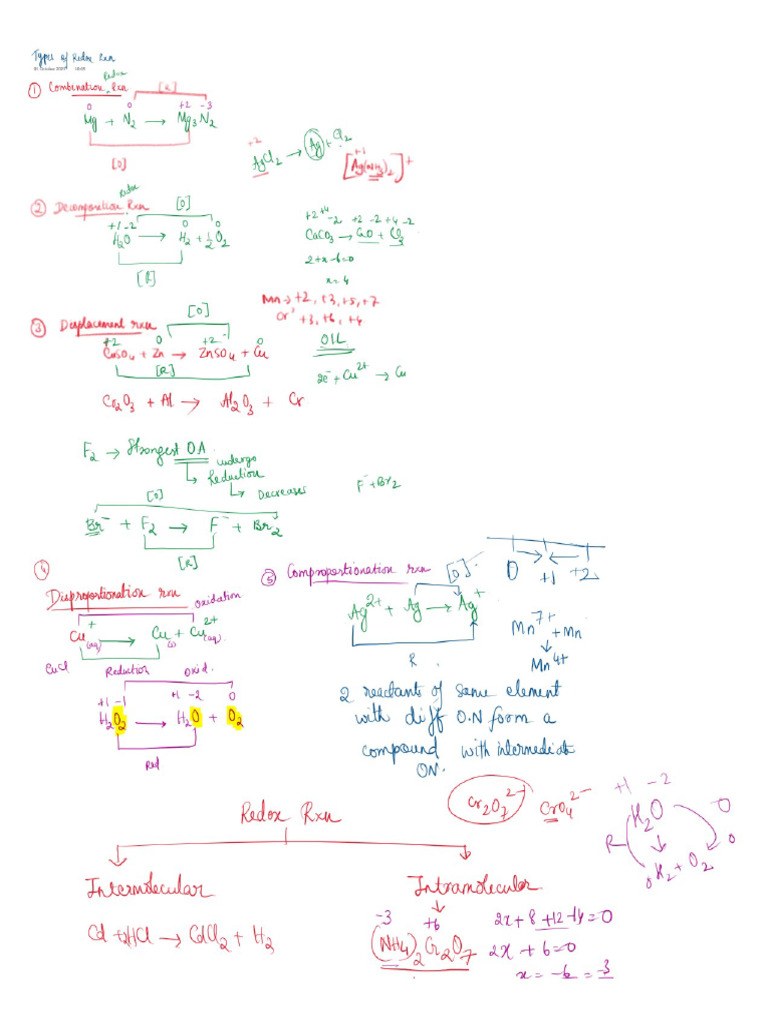 Types of Redox Rxn
Redox
① Combination Rxn [R]
0 0 +2 -3
Mg + N₂ → Mg₃N₂
[O]
+2
AgCl₂ → Ag + Cl₂
+1
[Ag(NH₃)₂]⁺
Redox
② Decomposition Rxn [O]
+1 -2 0 0
H₂O → H₂ + ½O₂
[R]
+2 +4 -2 +2 -2 +4 -2
CaCO₃ → CaO + CO₂
2+x-6=0
x=4
Mn → +2, +3, +5, +7
Cr → +3, +6, +4
③ Displacement rxn [O]
+2 0 +2 0
CuSO₄ + Zn → ZnSO₄ + Cu
[R]
OIL
2e⁻ + Cu²⁺ → Cu
Cr₂O₃ + Al → Al₂O₃ + Cr
F₂ → Strongest OA
undergo
↳ Reduction
↳ Decreases
F⁻ + Br₂
[O]
Br⁻ + F₂ → F⁻ + Br₂
[R]
④
Disproportionation rxn
oxidation
Cu⁺(aq) → Cu(s) + Cu²⁺(aq)
CuCl Reduction Oxid.
+1 -1 +1 -2 0
H₂O₂ → H₂O + O₂
Red
⑤ Comproportionation rxn [O]
0 +1 +2
Ag²⁺ + Ag → Ag⁺
R
Mn⁷⁺ + Mn
↓
Mn⁴⁺
2 reactants of same element
with diff O.N form a
compound with intermediate
ON.
Cr₂O₇²⁻ CrO₄²⁻
+1 -2
H₂O 0
R ↓ 0
0 H₂ + O₂
Redox Rxn
Intermolecular Intramolecular
Cd + 2HCl → CdCl₂ + H₂
-3 +6
(NH₄)₂Cr₂O₇
2x + 8 + 12 - 14 = 0
2x + 6 = 0
x = -6 = -3